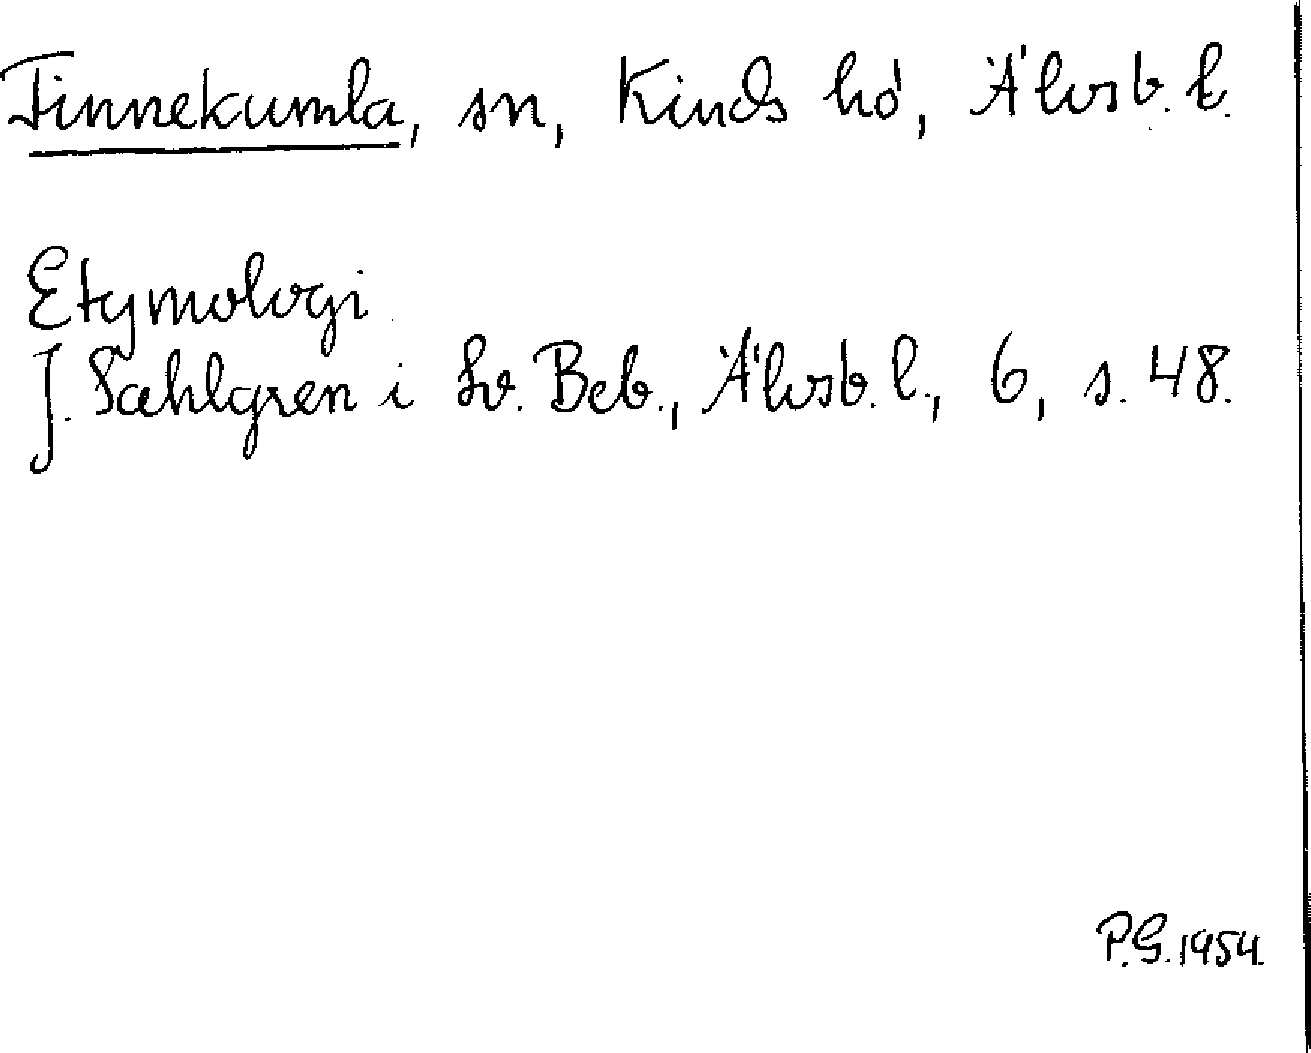 Finnekumla, sn, Kinds hd, Älvsb. l.
Etymologi
J. Sahlgren i Sv. Beb., Älvsb. l., 6, s. 48.
P.G. 1954.